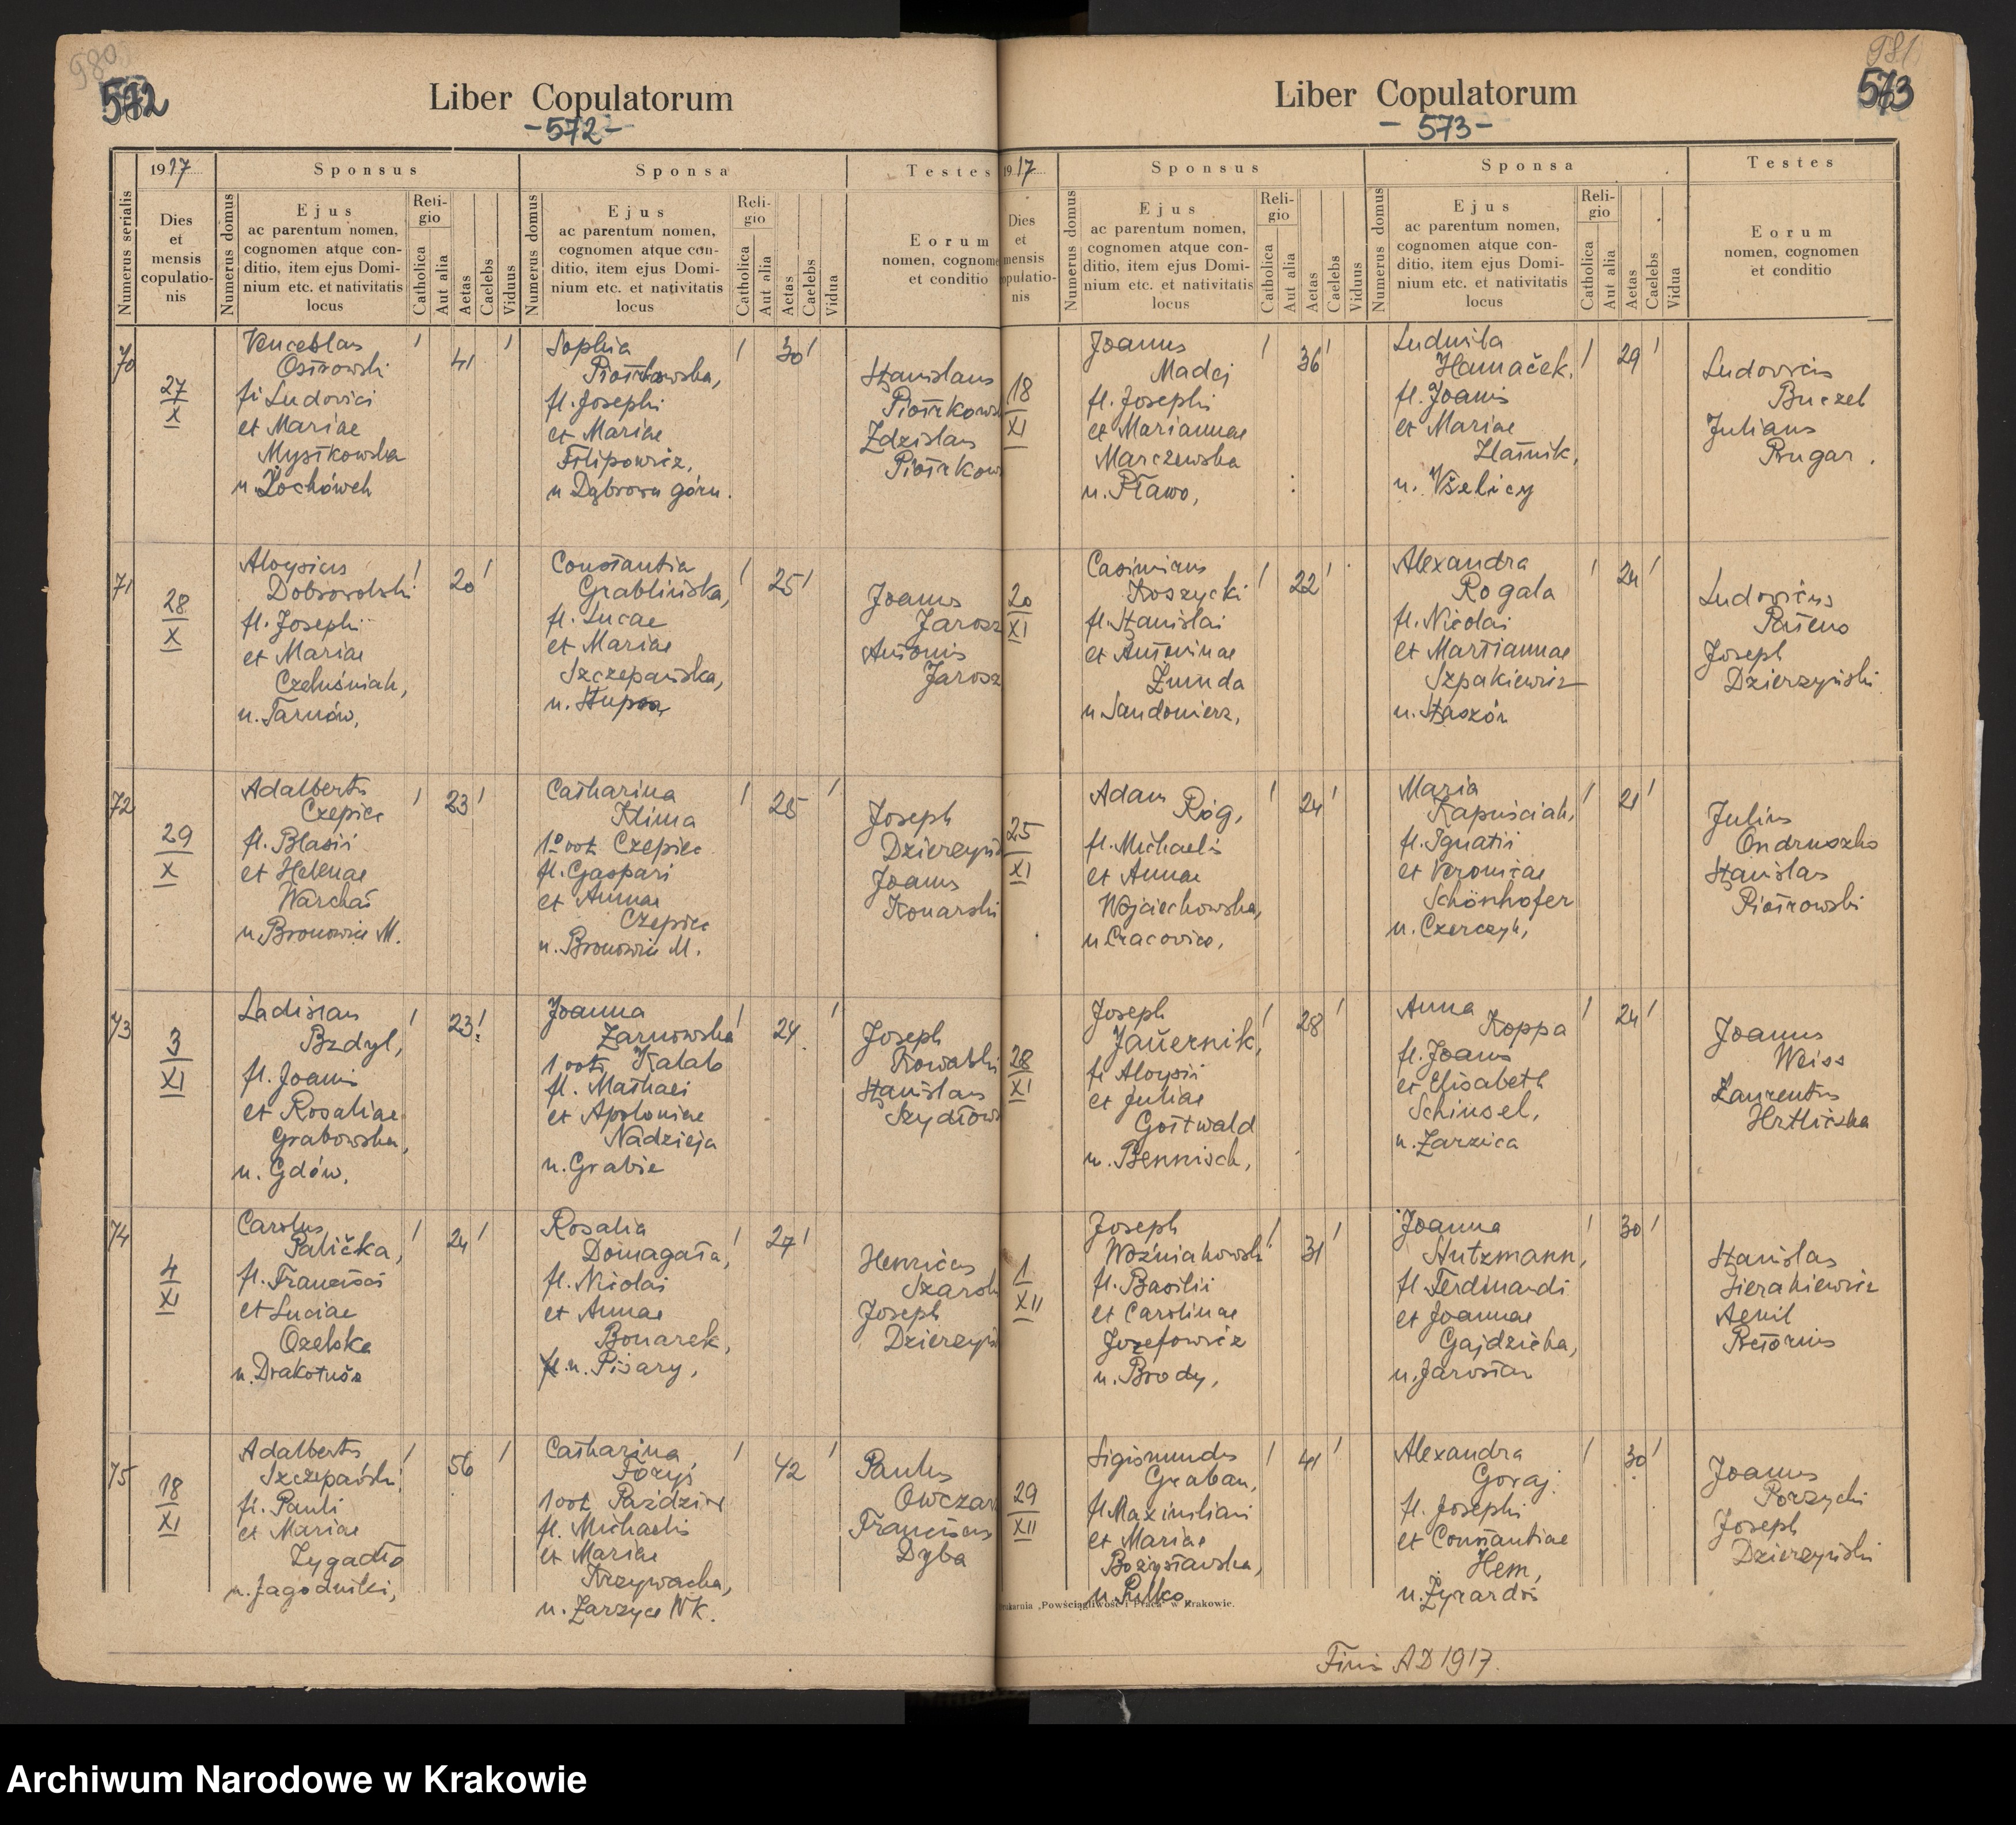 980
572
Liber Copulatorum
-572-
Numerus serialis
1917
Dies et mensis copulationis
Sponsus
Numerus domus
Ejus ac parentum nomen, cognomen atque conditio, item ejus Dominium etc. et nativitatis locus
Religio
Catholica
Aut alia
Aetas
Caelebs
Viduus
Sponsa
Numerus domus
Ejus ac parentum nomen, cognomen atque conditio, item ejus Dominium etc. et nativitatis locus
Religio
Catholica
Aut alia
Aetas
Caelebs
Vidua
Testes
Eorum
nomen, cognome
et conditio
70
27
X
Venceslaus
Ostrowski
fi Ludovici
et Mariae
Mystkowska
n. Żochówek
41
Sophia
Piotrkowska,
fl. Josephi
et Mariae
Filipowicz,
n Dąbrowa górn.
30
Stanislaus
Piotrkows
Zdzislaus
Piotrkow
71
28
X
Aloysius
Dobrowolski
fl. Josephi
et Mariae
Czeluśniak,
n. Tarnów,
20
Constantia
Grablińska,
fl. Lucae
et Mariae
Szczepańska,
n. Stupca
25
Joannes
Jarosz
Antonius
Jarosz
72
29
X
Adalbertus
Czepiec
fl. Blasii
et Helenae
Warchał
n. Bronowice M.
23
Catharina
Klima
1º voti Czepiec
fl. Gaspari
et Annae
Czepiec
n. Bronowice M.
25
Joseph
Dzierzyńs
Joannes
Konarski
73
3
XI
Ladislaus
Bzdyl,
fl. Joannis
et Rosaliae
Grabowska,
n. Gdów,
23
Joanna
Żarnowska
1 voti Kalab
fl. Mathaei
et Apoloniae
Nadzieja
n. Grabie
24
Joseph
Kowalski
Stanislaus
Szydłow
74
4
XI
Carolus
Palička,
fl. Francisci
et Luciae
Ozelska
n. Drakotuša
24
Rosalia
Domagała,
fl. Nicolai
et Annae
Bonarek,
n. Pisary,
27
Henricus
Szarsk
Joseph
Dzierzyńs
75
18
XI
Adalbertus
Szczepański
fi. Pauli
et Mariae
Zygadło
n. Jagodniki,
56
Catharina
Foryś
1 voti Paździor
fl. Michaelis
et Mariae
Krzywacka,
n. Zarzyce WK.
42
Paulus
Owczar
Franciscus
Dyba
981
573
Liber Copulatorum
- 573-
1917
Dies et mensis copulationis
Sponsus
Numerus domus
Ejus ac parentum nomen, cognomen atque conditio, item ejus Dominium etc. et nativitatis locus
Religio
Catholica
Aut alia
Aetas
Caelebs
Viduus
Sponsa
Numerus domus
Ejus ac parentum nomen, cognomen atque conditio, item ejus Dominium etc. et nativitatis locus
Religio
Catholica
Aut alia
Aetas
Caelebs
Vidua
Testes
Eorum
nomen, cognomen
et conditio
18
XI
Joannes
Madej
fl. Josephi
et Mariannae
Marczewska
n. Pławo,
36
Ludmila
Hamaček,
fl. Joannis
et Mariae
Zlatnik,
n. Všelicy
29
Ludovicus
Buczek
Julianus
Rugar.
20
XI
Casimirus
Koszycki
fl. Stanislai
et Antoninae
Żmuda
n Sandomierz,
22
Alexandra
Rogala
fl. Nicolai
et Martiannae
Szpakiewicz
n. Staszów
24
Ludovicus
Joseph
Dzierzyński
25
XI
Adam Róg,
fl. Michaelis
et Annae
Wojciechowska,
n Cracovia,
24
Maria
Kapuściak,
fl. Ignatii
et Veronicae
Schönhofer
n. Czerczyk,
21
Julius
Ondruszko
Stanislas
Piotrowski
28
XI
Joseph
Jauernik,
fi Aloysii
et Juliae
Gottwald
n. Bennisch,
28
Anna
Koppa
fl. Joannis
et Elisabeth
Schinsel,
n. Zarzica
24
Joannes
Weiss
Laurentius
Hrtliczka
1
XII
Joseph
Woźniakowski
fl. Basilii
et Carolinae
Jozefowicz
n. Brody,
31
Joanna
Stutzmann,
fl Ferdinandi
et Joannae
Gajdzicka,
n. Jarosław
30
Stanislas
Sierakiewicz
Aemil
Pretorius
29
XII
Sigismundus
Graban,
fl Maximiliani
et Mariae
Bożysławska,
n. Pilko
41
Alexandra
Goraj
fl. Josephi
et Constantiae
Hem,
n. Żyrardów
30
Joannes
Porzycki
Joseph
Dzierzyński
Drukarnia „Powściągliwość i Praca" w Krakowie.
Finis AD 1917.
Archiwum Narodowe w Krakowie